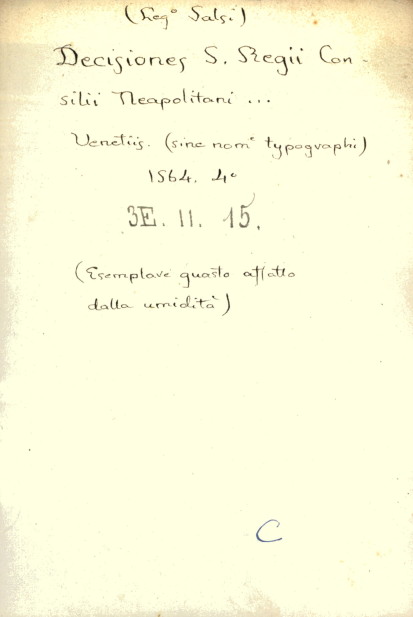 (Leg° Salsi)
Decisiones S. Regii Con-
silii Neapolitani ...
Venetiis. (sine nome typographi)
1564. 4°
3E. 11. 15.
(Esemplare guasto affatto
dalla umidità)
C